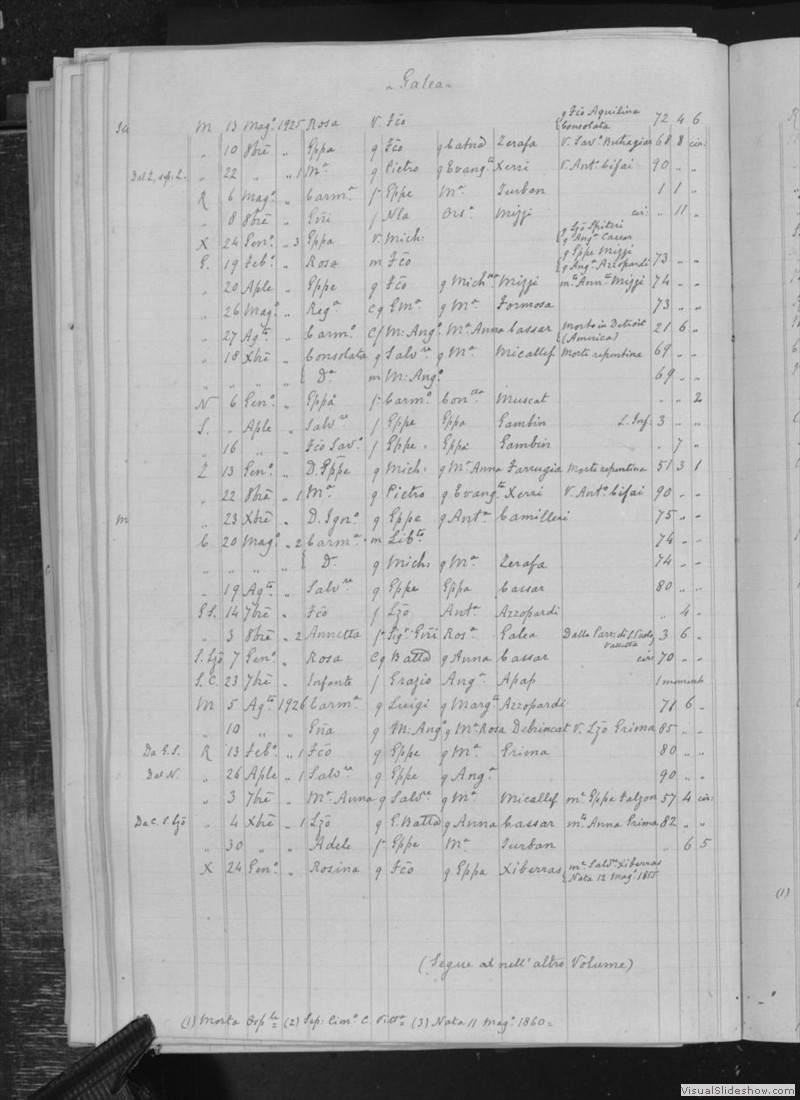 Galea
M 13 Mag.º 1925 Rosa V. Fčo g Fčo Aquilina 72 4 6
Consolata
" 10 8bré " Eppa g Fčo g Catnd Zerafa V. Sav.º Buttagiar 68 8 cir.
Dal Z, sep: L. " 22 " " 1 Mª g Pietro g Evang.ta Xerri V. Ant.º Cifai 90 " "
R 6 Mag.º " Carm.ª f. Eppe Mª Zurban 1 1 "
" 8 8bré " f Nla Ors.ª Mizzi cir: " 11 "
X 24 Gen.º " 3 Eppa V. Mich: g Ljō Spiteri
g Ang.ª Cassar
G. 19 Feb.º " Rosa m Fčo g Eppe Mizzi 73 " "
g Ang.ª Azzopardi
" 20 Aple " Eppe g Fčo g Mich.na Mizzi m.to Ann.ta Mizzi 74 " "
" 26 Mag.º " Reg.ª cg Emª g Mª Formosa 73 " "
" 27 Ag.to " Carm.º cf M: Ang.º Mª Anna Cassar Morto in Detroit 21 6 "
(America)
" 18 Xbré " Consolata g Salv.re g Mª Micallef Morte repentina 69 " "
" " " " Dª m M: Ang.º 69 " "
N 6 Gen.º " Eppa f. Carm.º Con.tta Muscat " " 2
S. " Aple " Salv.re f Eppe Eppa Gambin L. Inf: 3 " "
" 16 " " Fčo Sav.º f Eppe Eppa Gambin " 7 "
Z 13 Gen.º " D. Eppe g Mich: g Mª Anna Farrugia Morte repentina 51 3 1
" 22 8bré " 1 Mª g Pietro g Evang.ta Xerri V. Ant.º Cifai 90 " "
M " 23 Xbré " D. Ign.º g Eppe g Ant.ª Camilleri 75 " "
C 20 Mag.º " 2 Carm.ª m Lib.to 74 " "
" " " " Dª g Mich: g Mª Zerafa 74 " "
" 19 Ag.to " Salv.re g Eppe Eppa Cassar 80 " "
GS. 14 7bré " Fčo f Ljō Ant.ª Azzopardi " 4 "
" 3 8bré " 2 Annetta f. Sig.r Ros.ª Galea Dalla Parr: di S. Paolo 3 6 "
Valletta
S. Ljō 7 Gen.º " Rosa cg Battā g Anna Cassar cir: 70 " "
S. C. 23 7bré " Infante f Grazio Ang.ª Apap 1 momento
M 5 Ag.to 1926 Carm.ª g Luigi g Marg.ta Azzopardi 71 6 "
" 10 " " g M: Ang.º g Mª Rosa Debrincat V. Ljō Grima 85 " "
Da G.S. R 13 Feb.º " 1 Fčo g Eppe g Mª Grima 80 " "
Dal N. " 26 Aple " 1 Salv.re g Eppe g Ang.ª 90 " "
" 3 7bré " Mª Anna g Salv.re g Mª Micallef m.ª Eppe Falzon 57 4 cir:
Da C. S. Ljō " 4 Xbré " 1 Ljō g G. Battā g Anna Cassar m.to Anna Grima 82 " "
" 30 " " Adele f. Eppe Mª Zurban " 6 5
X 24 Gen.º " Rosina g Fčo g Eppa Xiberras m.ª Salv.re Xiberras
Nata 12 Mag.º 1855
(Segue al nell' altro Volume)
(1) Morta Osp.le = (2) Sep: Cim.º C. Vitt.ª = (3) Nata 11 Mag.º 1860 =
(1)
VisualSlideshow.com